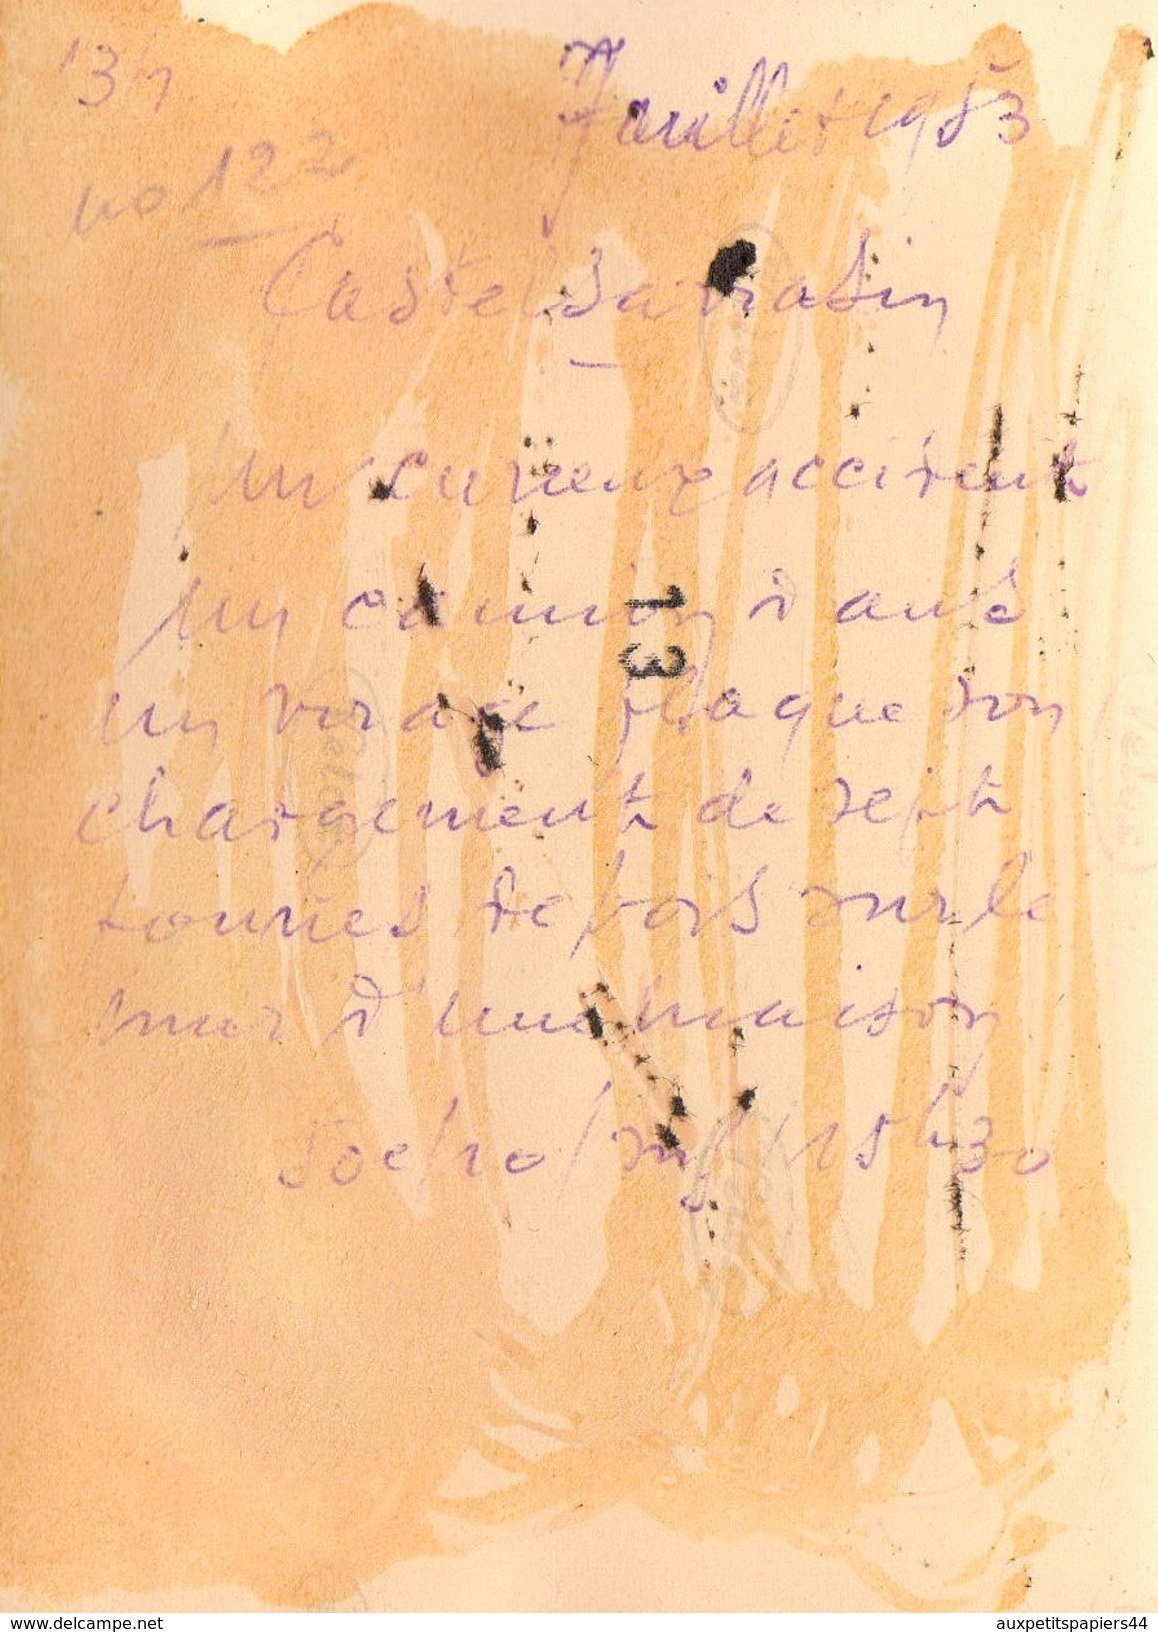 13h
7 Juillet 1953
no 122
Castelsarrasin
Un curieux accident
Un camion dans
un virage plaque son
chargement de sept
tonnes de bois sur le
mur d'une maison
13
15h30
www.delcampe.net
auxpetitspapiers44